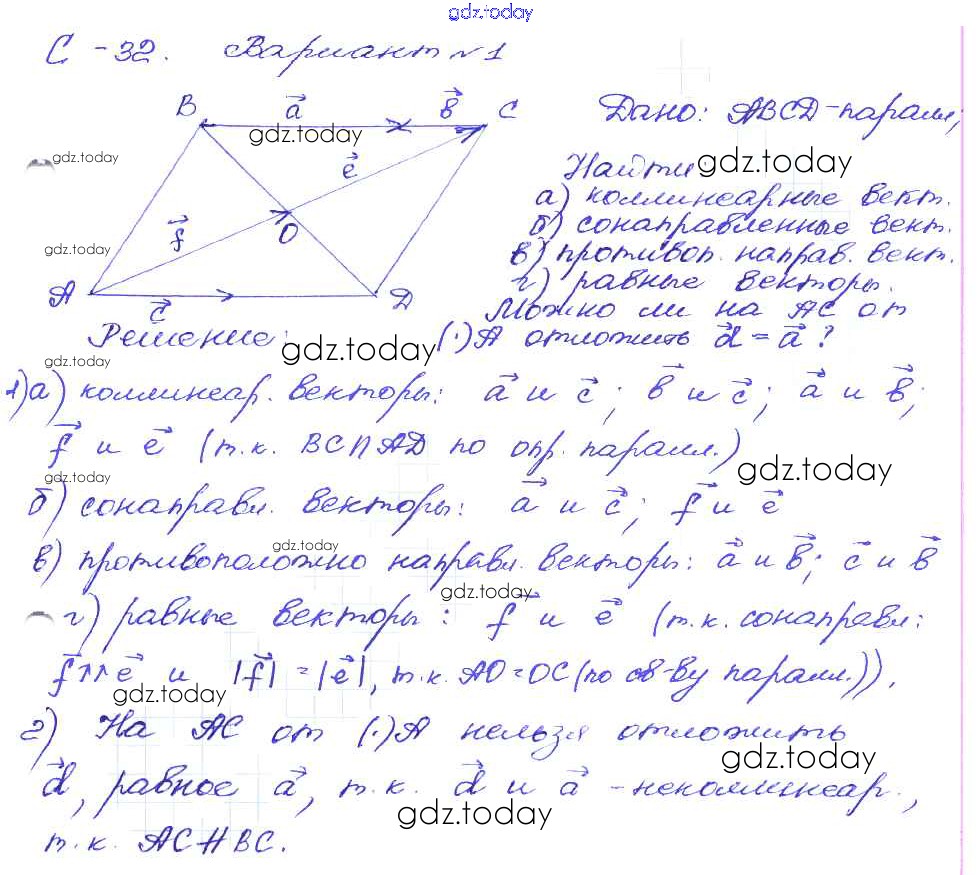 gdz.today
С-32. Вариант №1
B a⃗ b⃗ C
Дано: ABCD-паралл,
gdz.today
gdz.today
Найти:
gdz.today
e⃗
а) коллинеарные вект.
б) сонаправленные вект.
f⃗ O
gdz.today
в) противоп. направ. вект.
г) равные векторы.
A c⃗ D
Можно ли на AC от
Решение:
gdz.today
(·)A отложить d⃗ = a⃗ ?
gdz.today
1) а) коллинеар. векторы: a⃗ и c⃗; b⃗ и c⃗; a⃗ и b⃗;
f⃗ и e⃗ (т.к. BC∩AD по опр. паралл.)
gdz.today
gdz.today
б) сонаправл. векторы: a⃗ и c⃗; f⃗ и e⃗
gdz.today
в) противоположно направл. векторы: a⃗ и b⃗; c⃗ и b⃗
gdz.today
г) равные векторы: f⃗ и e⃗ (т.к. сонаправл:
f⃗↑↑e⃗ и |f⃗| = |e⃗|, т.к. AO=OC (по св-ву паралл.)).
gdz.today
2) На AC от (·)A нельзя отложить
gdz.today
d⃗, равное a⃗, т.к. d⃗ и a⃗ - неколлинеар.,
gdz.today
т.к. AC∦BC.